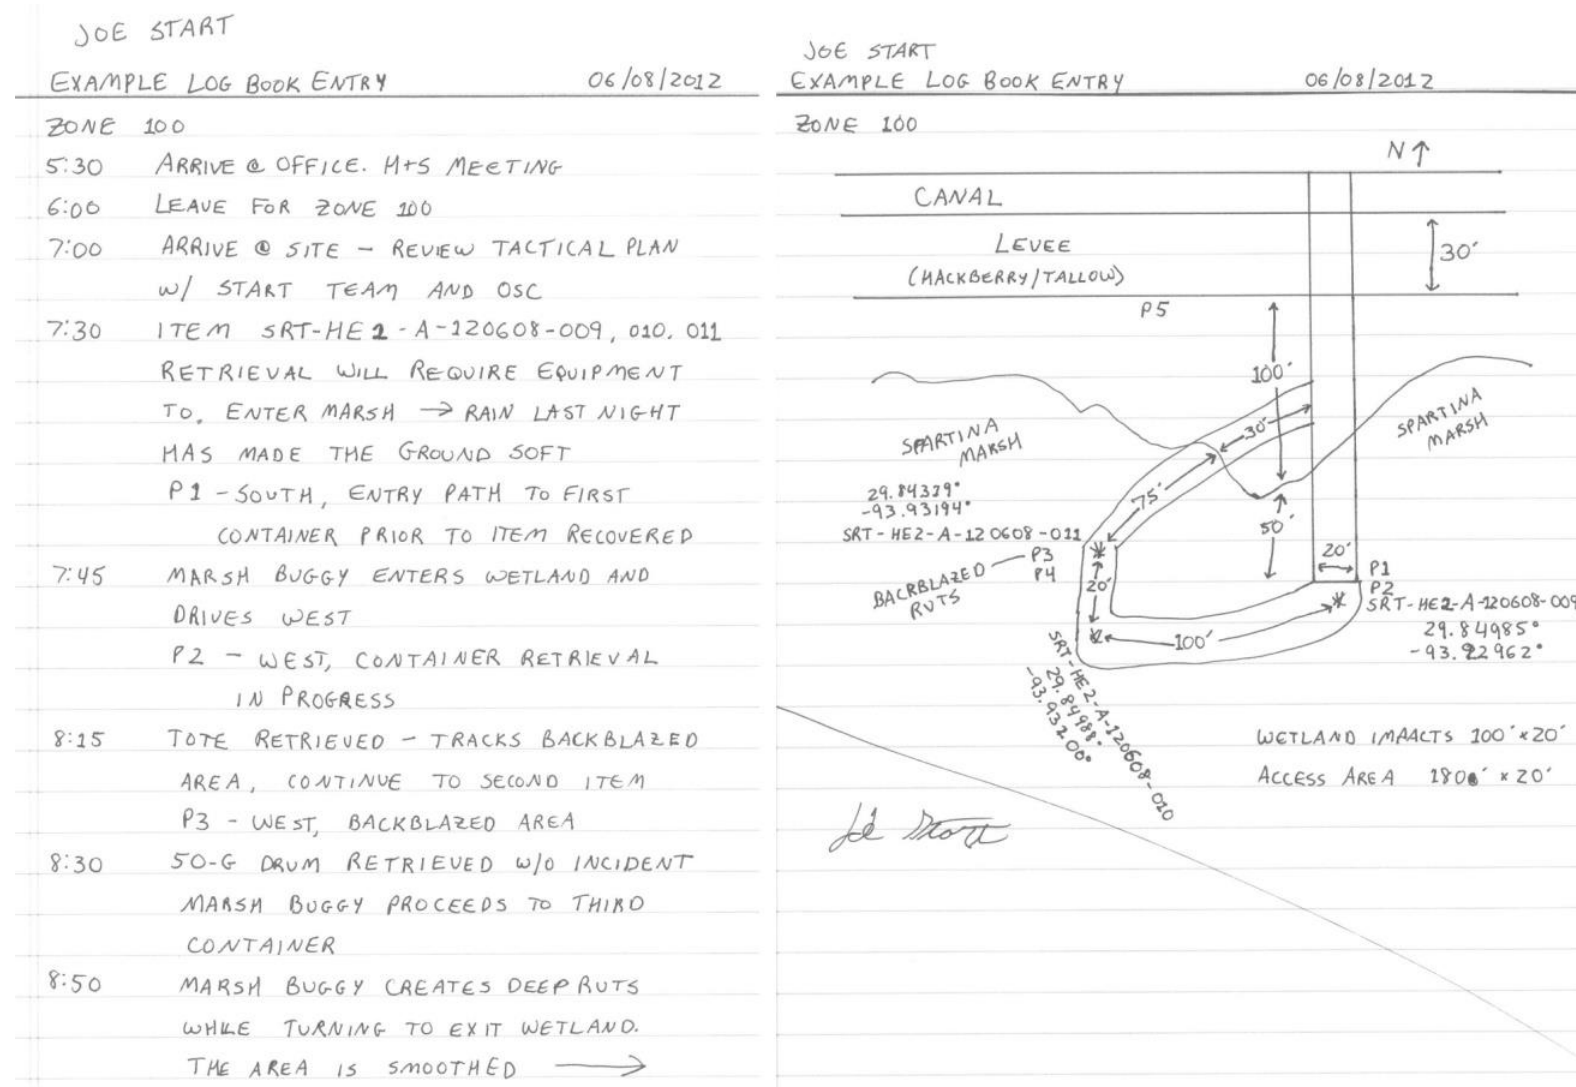 JOE START
EXAMPLE LOG BOOK ENTRY 06/08/2012
ZONE 100
5:30 ARRIVE @ OFFICE. H+S MEETING
6:00 LEAVE FOR ZONE 100
7:00 ARRIVE @ SITE - REVIEW TACTICAL PLAN
W/ START TEAM AND OSC
7:30 ITEM SRT-HE2-A-120608-009, 010, 011
RETRIEVAL WILL REQUIRE EQUIPMENT
TO. ENTER MARSH → RAIN LAST NIGHT
HAS MADE THE GROUND SOFT
P1 - SOUTH, ENTRY PATH TO FIRST
CONTAINER PRIOR TO ITEM RECOVERED
7:45 MARSH BUGGY ENTERS WETLAND AND
DRIVES WEST
P2 - WEST, CONTAINER RETRIEVAL
IN PROGRESS
8:15 TOTE RETRIEVED - TRACKS BACKBLAZED
AREA, CONTINUE TO SECOND ITEM
P3 - WEST, BACKBLAZED AREA
8:30 50-G DRUM RETRIEVED W/O INCIDENT
MARSH BUGGY PROCEEDS TO THIRD
CONTAINER
8:50 MARSH BUGGY CREATES DEEP RUTS
WHILE TURNING TO EXIT WETLAND.
THE AREA IS SMOOTHED →
JOE START
EXAMPLE LOG BOOK ENTRY 06/08/2012
ZONE 100
N↑
CANAL
LEVEE
(HACKBERRY/TALLOW)
30'
P5
100'
SPARTINA
MARSH
30'
SPARTINA
MARSH
29.84339°
-93.93194°
SRT-HE2-A-120608-011
75'
50'
BACKBLAZED
RUTS
P3
P4
20'
20'
P1
P2
SRT-HE2-A-120608-009
29.84985°
-93.92962°
100'
SRT-HE2-A-120608-010
29.84988°
-93.93200°
WETLAND IMPACTS 100' x 20'
ACCESS AREA 180' x 20'
Joe Start